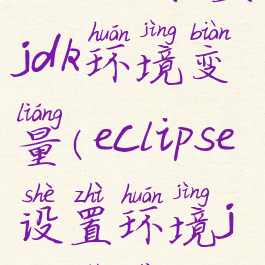 huán jìng biàn
jdk环境变
liáng
量(eclipse
shè zhì huán jìng
设置环境j